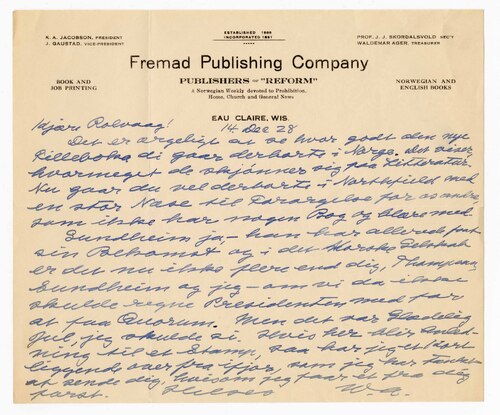 K. A. JACOBSON, PRESIDENT
J. GAUSTAD, VICE-PRESIDENT
ESTABLISHED 1886
INCORPORATED 1891
PROF. J. J. SKORDALSVOLD SEC'Y
WALDEMAR AGER, TREASURER
Fremad Publishing Company
PUBLISHERS OF "REFORM"
A Norwegian Weekly devoted to Prohibition,
Home, Church and General News
BOOK AND
JOB PRINTING
NORWEGIAN AND
ENGLISH BOOKS
EAU CLAIRE, WIS.
14 Dec 28
Kjære Rolvaag!
Det er ærgeligt at se hvor godt den nye
di gaar derborte i Norge. Det viser
hvormeget de skjønner sig paa Litteratur.
Nu gaar du vel derborte i Northfield med
en stor Nase til Forargelse for os andre,
som ikke har nogen Bog og blære med
Sundheim ja – han har allerede faat
sin Bekomst og i det Norske Selskab
er du nu ikke flere end dig, Thompson,
Sundheim og jeg – om vi da ikke
skulde regne Presidenten med for
at faa Quorum. Men det var Glædelig
Jul, jeg skulde si. Hvis her blir Anled-
ning til et Stamp, saa har jeg et kort
liggende over fra ifjor, som jeg har tænkt
at sende dig, hvisom jeg faar et fra dig
først.
W. A.